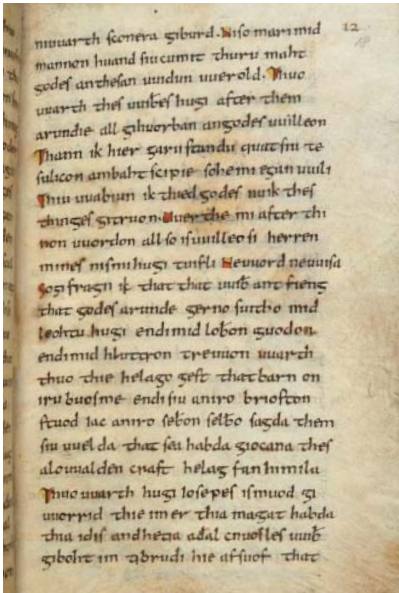 12
niuuarth sconera giburd. Niso mari mid
mannon huand siu cumit thuru maht
godes an thesan uuidun uuerold. Thuo
uuarth thes uuibes hugi after them
arundie all gihuorban an godes uuilleon
Than ik hier garu standu quat siu te
sulicon ambaht scipie so he mi egan uuili
Thiu uuabiun ik thiedgodes nu ik thes
thinges gitruon. Uuerthe mi after thi
non uuordon all so is uuilleo si herren
mines nis mi hugi tuifli Neuuord neuuisa
So gifragn ik that that uuib ant fieng
that godes arunde gerno suitho mid
leohtu hugi endi mid lobon guodon
endi mid hluttron treuuon uuarth
thuo thie helago gest that barn on
iru buosme endi siu an iro briofton
stuod iac an iro sebon selbo sagda them
siu uuelda that sea habda giocana thes
alouualden craft helag fan himila
Thuo uuarth hugi Iosepes is muod gi
uuorrid thie im er thia magat habda
thia idis andhetia aðal cnuosles uuib
giboht im te brudi hie afsuof that